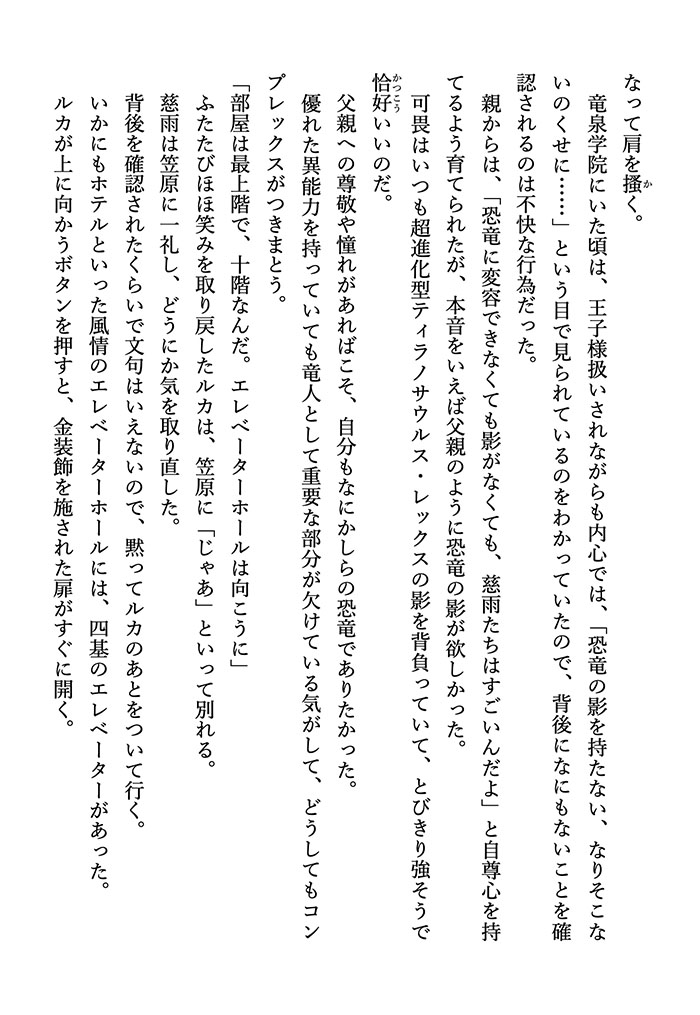 なって肩を掻く。
竜泉学院にいた頃は、王子様扱いされながらも内心では、「恐竜の影を持たない、なりそこな
いのくせに……」という目で見られているのをわかっていたので、背後になにもないことを確
認されるのは不快な行為だった。
親からは、「恐竜に変容できなくても影がなくても、慈雨たちはすごいんだよ」と自尊心を持
てるよう育てられたが、本音をいえば父親のように恐竜の影が欲しかった。
可畏はいつも超進化型ティラノサウルス・レックスの影を背負っていて、とびきり強そうで
恰好いいのだ。
父親への尊敬や憧れがあればこそ、自分もなにかしらの恐竜でありたかった。
優れた異能力を持っていても竜人として重要な部分が欠けている気がして、どうしてもコン
プレックスがつきまとう。
「部屋は最上階で、十階なんだ。エレベーターホールは向こうに」
ふたたびほほ笑みを取り戻したルカは、笠原に「じゃあ」といって別れる。
慈雨は笠原に一礼し、どうにか気を取り直した。
背後を確認されたくらいで文句はいえないので、黙ってルカのあとをついて行く。
いかにもホテルといった風情のエレベーターホールには、四基のエレベーターがあった。
ルカが上に向かうボタンを押すと、金装飾を施された扉がすぐに開く。